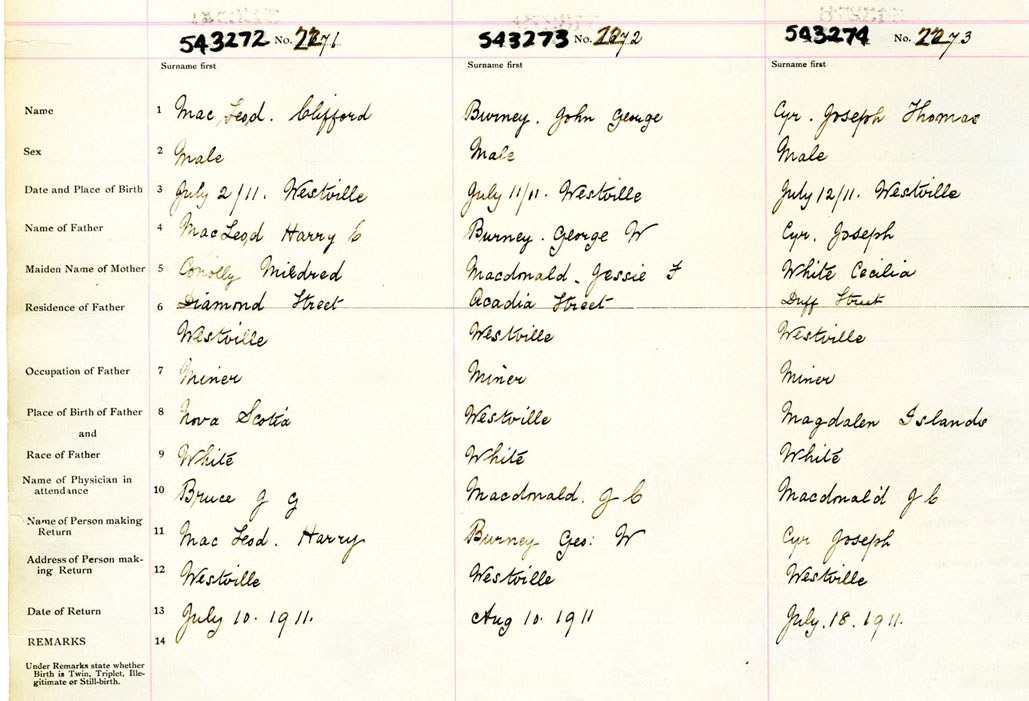 543272 No. 2271 543273 No. 2272 543274 No. 2273
Surname first Surname first Surname first
Name 1 Mac Leod. Clifford Burney. John George Cyr. Joseph Thomas
Sex 2 Male Male Male
Date and Place of Birth 3 July 2/11. Westville July 11/11. Westville July 12/11. Westville
Name of Father 4 MacLeod Harry E Burney. George W Cyr. Joseph
Maiden Name of Mother 5 Conolly Mildred Macdonald. Jessie F White Cecilia
Residence of Father 6 Diamond Street Acadia Street Duff Street
Westville Westville Westville
Occupation of Father 7 Miner Miner Miner
Place of Birth of Father 8 Nova Scotia Westville Magdalen Islands
and
Race of Father 9 White White White
Name of Physician in
attendance 10 Bruce J G Macdonald. J C Macdonald J C
Name of Person making
Return 11 Mac Leod. Harry Burney Geo: W Cyr Joseph
Address of Person mak-
ing Return 12 Westville Westville Westville
Date of Return 13 July 10. 1911. Aug 10. 1911 July. 18. 1911.
REMARKS 14
Under Remarks state whether
Birth is Twin, Triplet, Ille-
gitimate or Still-birth.